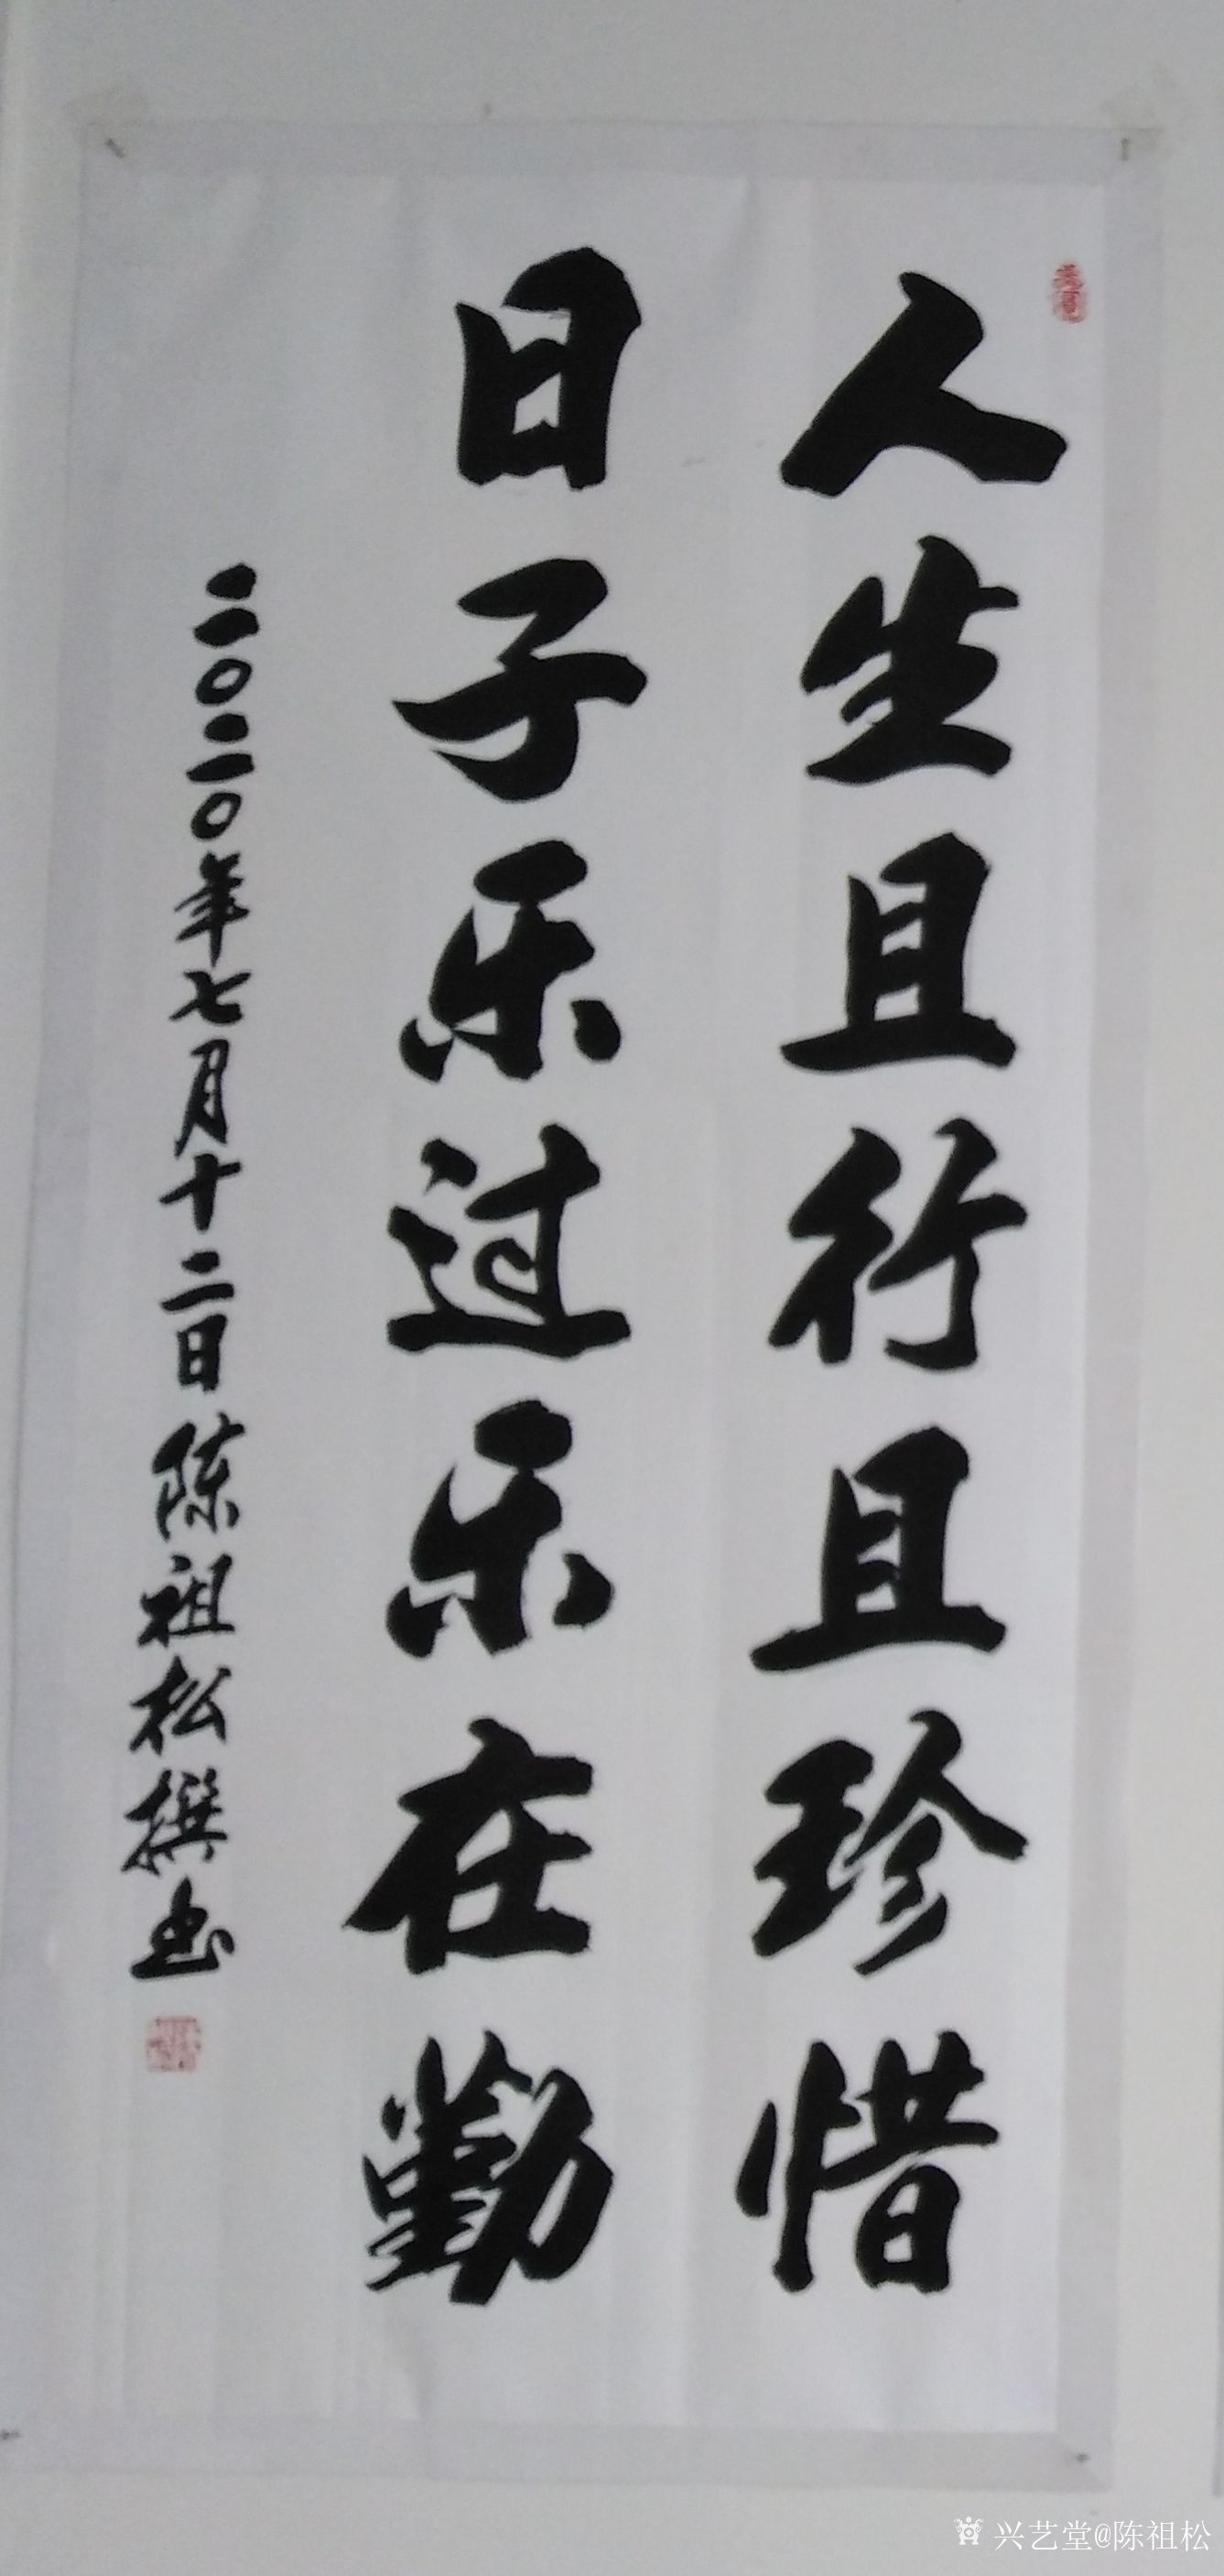 人生且行且珍惜
日子乐过乐在勤
二〇二〇年七月十二日陈祖松撰书
兴艺堂@陈祖松